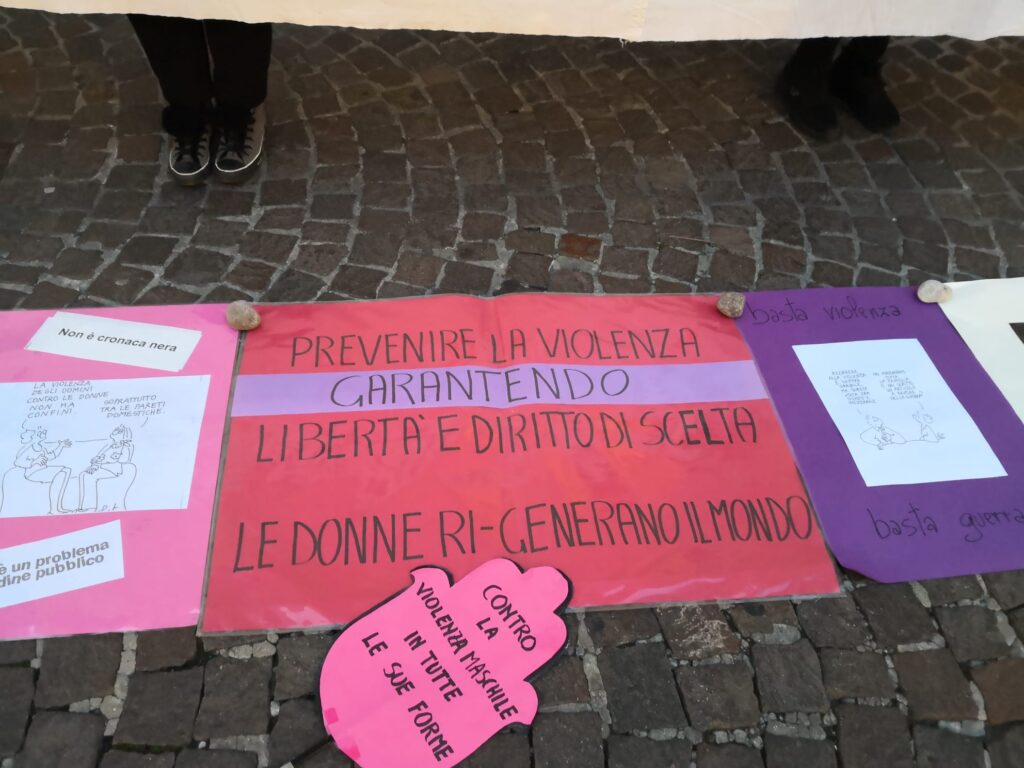 Non è cronaca nera
LA VIOLENZA
DEGLI UOMINI
CONTRO LE DONNE
NON HA
CONFINI.
SOPRATTUTTO
TRA LE PARETI
DOMESTICHE.
è un problema
dine pubblico
PREVENIRE LA VIOLENZA
GARANTENDO
LIBERTA' E DIRITTO DI SCELTA
LE DONNE RI-GENERANO IL MONDO
CONTRO
LA
VIOLENZA MASCHILE
IN TUTTE
LE SUE FORME
basta violenza
basta guerra